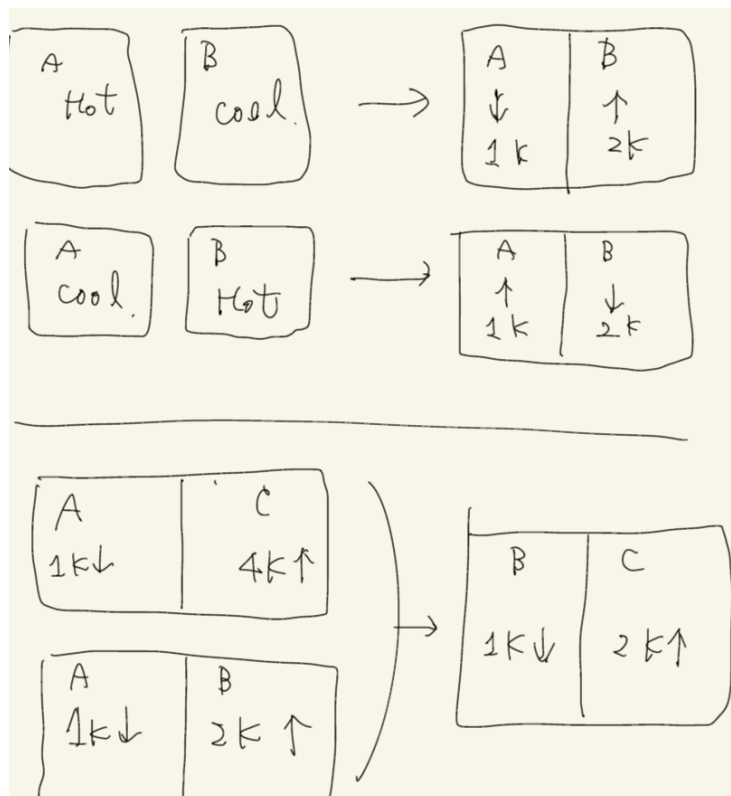 A
Hot
B
cool.
A
↓
1K
B
↑
2K
A
cool.
B
Hot
A
↑
1K
B
↓
2K
A
1K↓
C
4K↑
A
1K↓
B
2K ↑
B
1K↓
C
2K↑